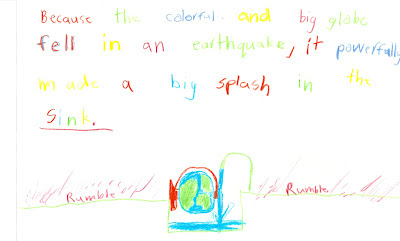 Because the colorful and big globe
fell in an earthquake, it powerfully
made a big splash in the
sink.
Rumble
Rumble